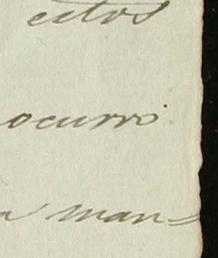 estos
ocurrio
a man=